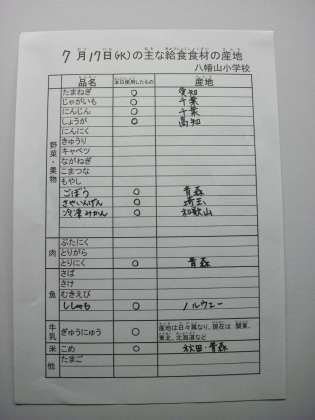 7月17日(水)の主な給食食材の産地
八幡山小学校
品名 本日使用したもの 産地
野菜・果物
たまねぎ ○ 愛知
じゃがいも ○ 千葉
にんじん ○ 千葉
しょうが ○ 高知
にんにく
きゅうり
キャベツ
ながねぎ
こまつな
もやし
ごぼう ○ 青森
さやいんげん ○ 埼玉
冷凍みかん ○ 和歌山
肉
ぶたにく
とりがら
とりにく ○ 青森
魚
さば
さけ
むきえび
ししゃも ○ ノルウェー
牛乳 ぎゅうにゅう ○ 産地は日々異なり、現在は 関東、
東北、北海道など
米 こめ ○ 秋田・青森
他 たまご